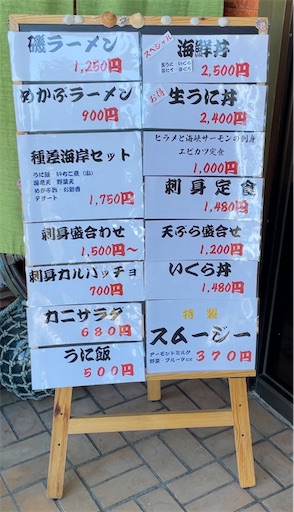 磯ラーメン
1,250円
めかぶラーメン
900円
種差海岸セット
うに飯 いちご煮(山)
海老天 野菜天
めかぶ酢 お新香
デザート
1,750円
刺身盛合わせ
1,500円~
刺身カルパッチョ
700円
カニサラダ
680円
うに飯
500円
スペシャル
海鮮丼
生うに いくら
2,500円
お得
生うに丼
2,400円
ヒラメと海峡サーモンの刺身
エビカツ定食
1,000円
刺身定食
1,480円
天ぷら盛合せ
1,200円
いくら丼
1,480円
特製
スムージー
アーモンドミルク
野菜・フルーツetc
370円